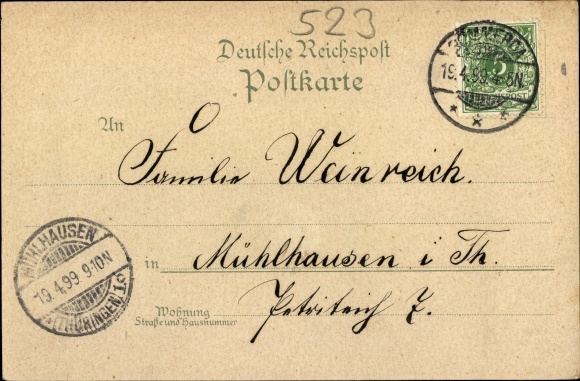 523
Deutsche Reichspost
Postkarte
19.4.99
5
An
Familie Weinreich.
MÜHLHAUSEN
19.4.99 9-10N
(THÜRINGEN) 1c
in Mühlhausen i Th.
Wohnung
Straße und Hausnummer
Petriteich 7.